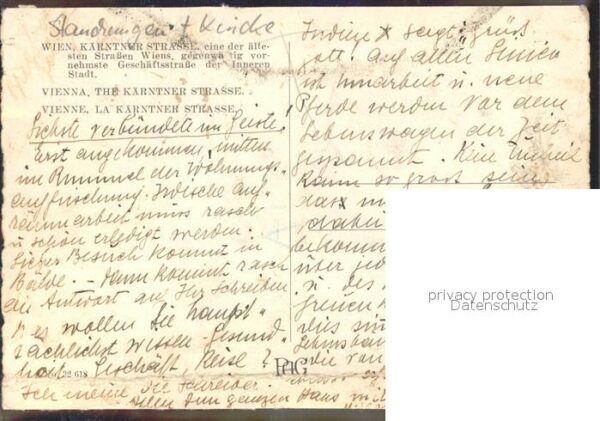 + Kirche
WIEN, KÄRNTNER STRASSE, eine der älte-
sten Straßen Wiens, gegenwärtig vor-
nehmste Geschäftsstraße der Inneren
Stadt.
VIENNA, THE KÄRNTNER STRASSE.
VIENNE, LA KÄRNTNER STRASSE.
Verbündete im Geiste!
Erst angekommen, mitten
im Rummel der Wohnungs-
auffrischung. Irdische auf-
raumarbeit muss rasch
u schön erledigt werden.
Lieber Besuch kommt in
Bälde — dann kommt rasch
die Antwort auf Ihr Schreiben
Was wollen Sie haupt-
sächlichst wissen. Gesund-
heit Geschäft, Reise?
Ich meine die Schreiber.
den ganzen Haus
32 618
PAG
sagt: grüss
gott! auf allen Linien
ist Umarbeit u. neue
Pferde werden vor dem
Lebenswagen der Zeit
gespannt. Kein Unheil
kann so gross sein
dass
dabei
bekomm
über
u. des
freuen
dies
Lebens
die von
privacy protection
Datenschutz